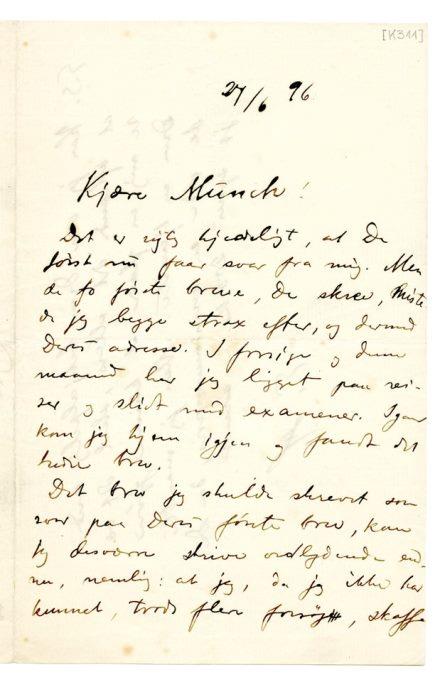 [K311]
27/6 96
Kjære Munch!
Det er rigtig kjedeligt, at De
først nu faar svar fra mig. Men
de to første breve, De skrev, miste
de jeg begge strax efter, og dermed
Deres adresse. I forrige og denne
maaned har jeg ligget paa rei-
ser og slidt med examener. Igaar
kom jeg hjem igjen og fandt det
tredie brev.
Det brev jeg skulde skrevet som
svar paa Deres første brev, kan
jeg desværre skrive ordlydende en-
nu, nemlig: at jeg, da jeg ikke har
kunnet, trods flere forsøg, skaffe